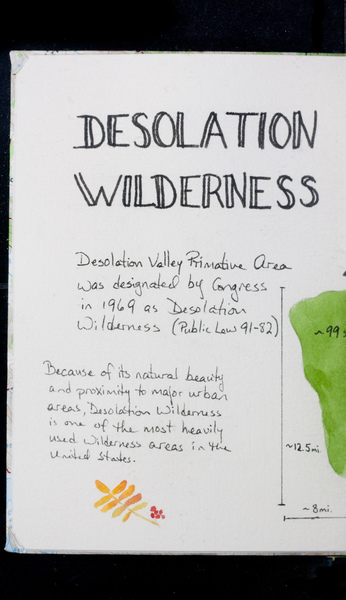 DESOLATION
WILDERNESS
Desolation Valley Primative Area
was designated by Congress
in 1969 as Desolation
Wilderness (Public Law 91-82)
Because of its natural beauty
and proximity to major urban
areas, Desolation Wilderness
is one of the most heavily
used Wilderness areas in the
United States.
~99
~12.5mi.
~8mi.